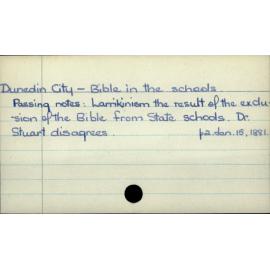 Dunedin City - Bible in the schools.
Passing notes: Larrikinism the result of the exclu-
sion of the Bible from State schools. Dr.
Stuart disagrees. p2. Jan. 15, 1881.